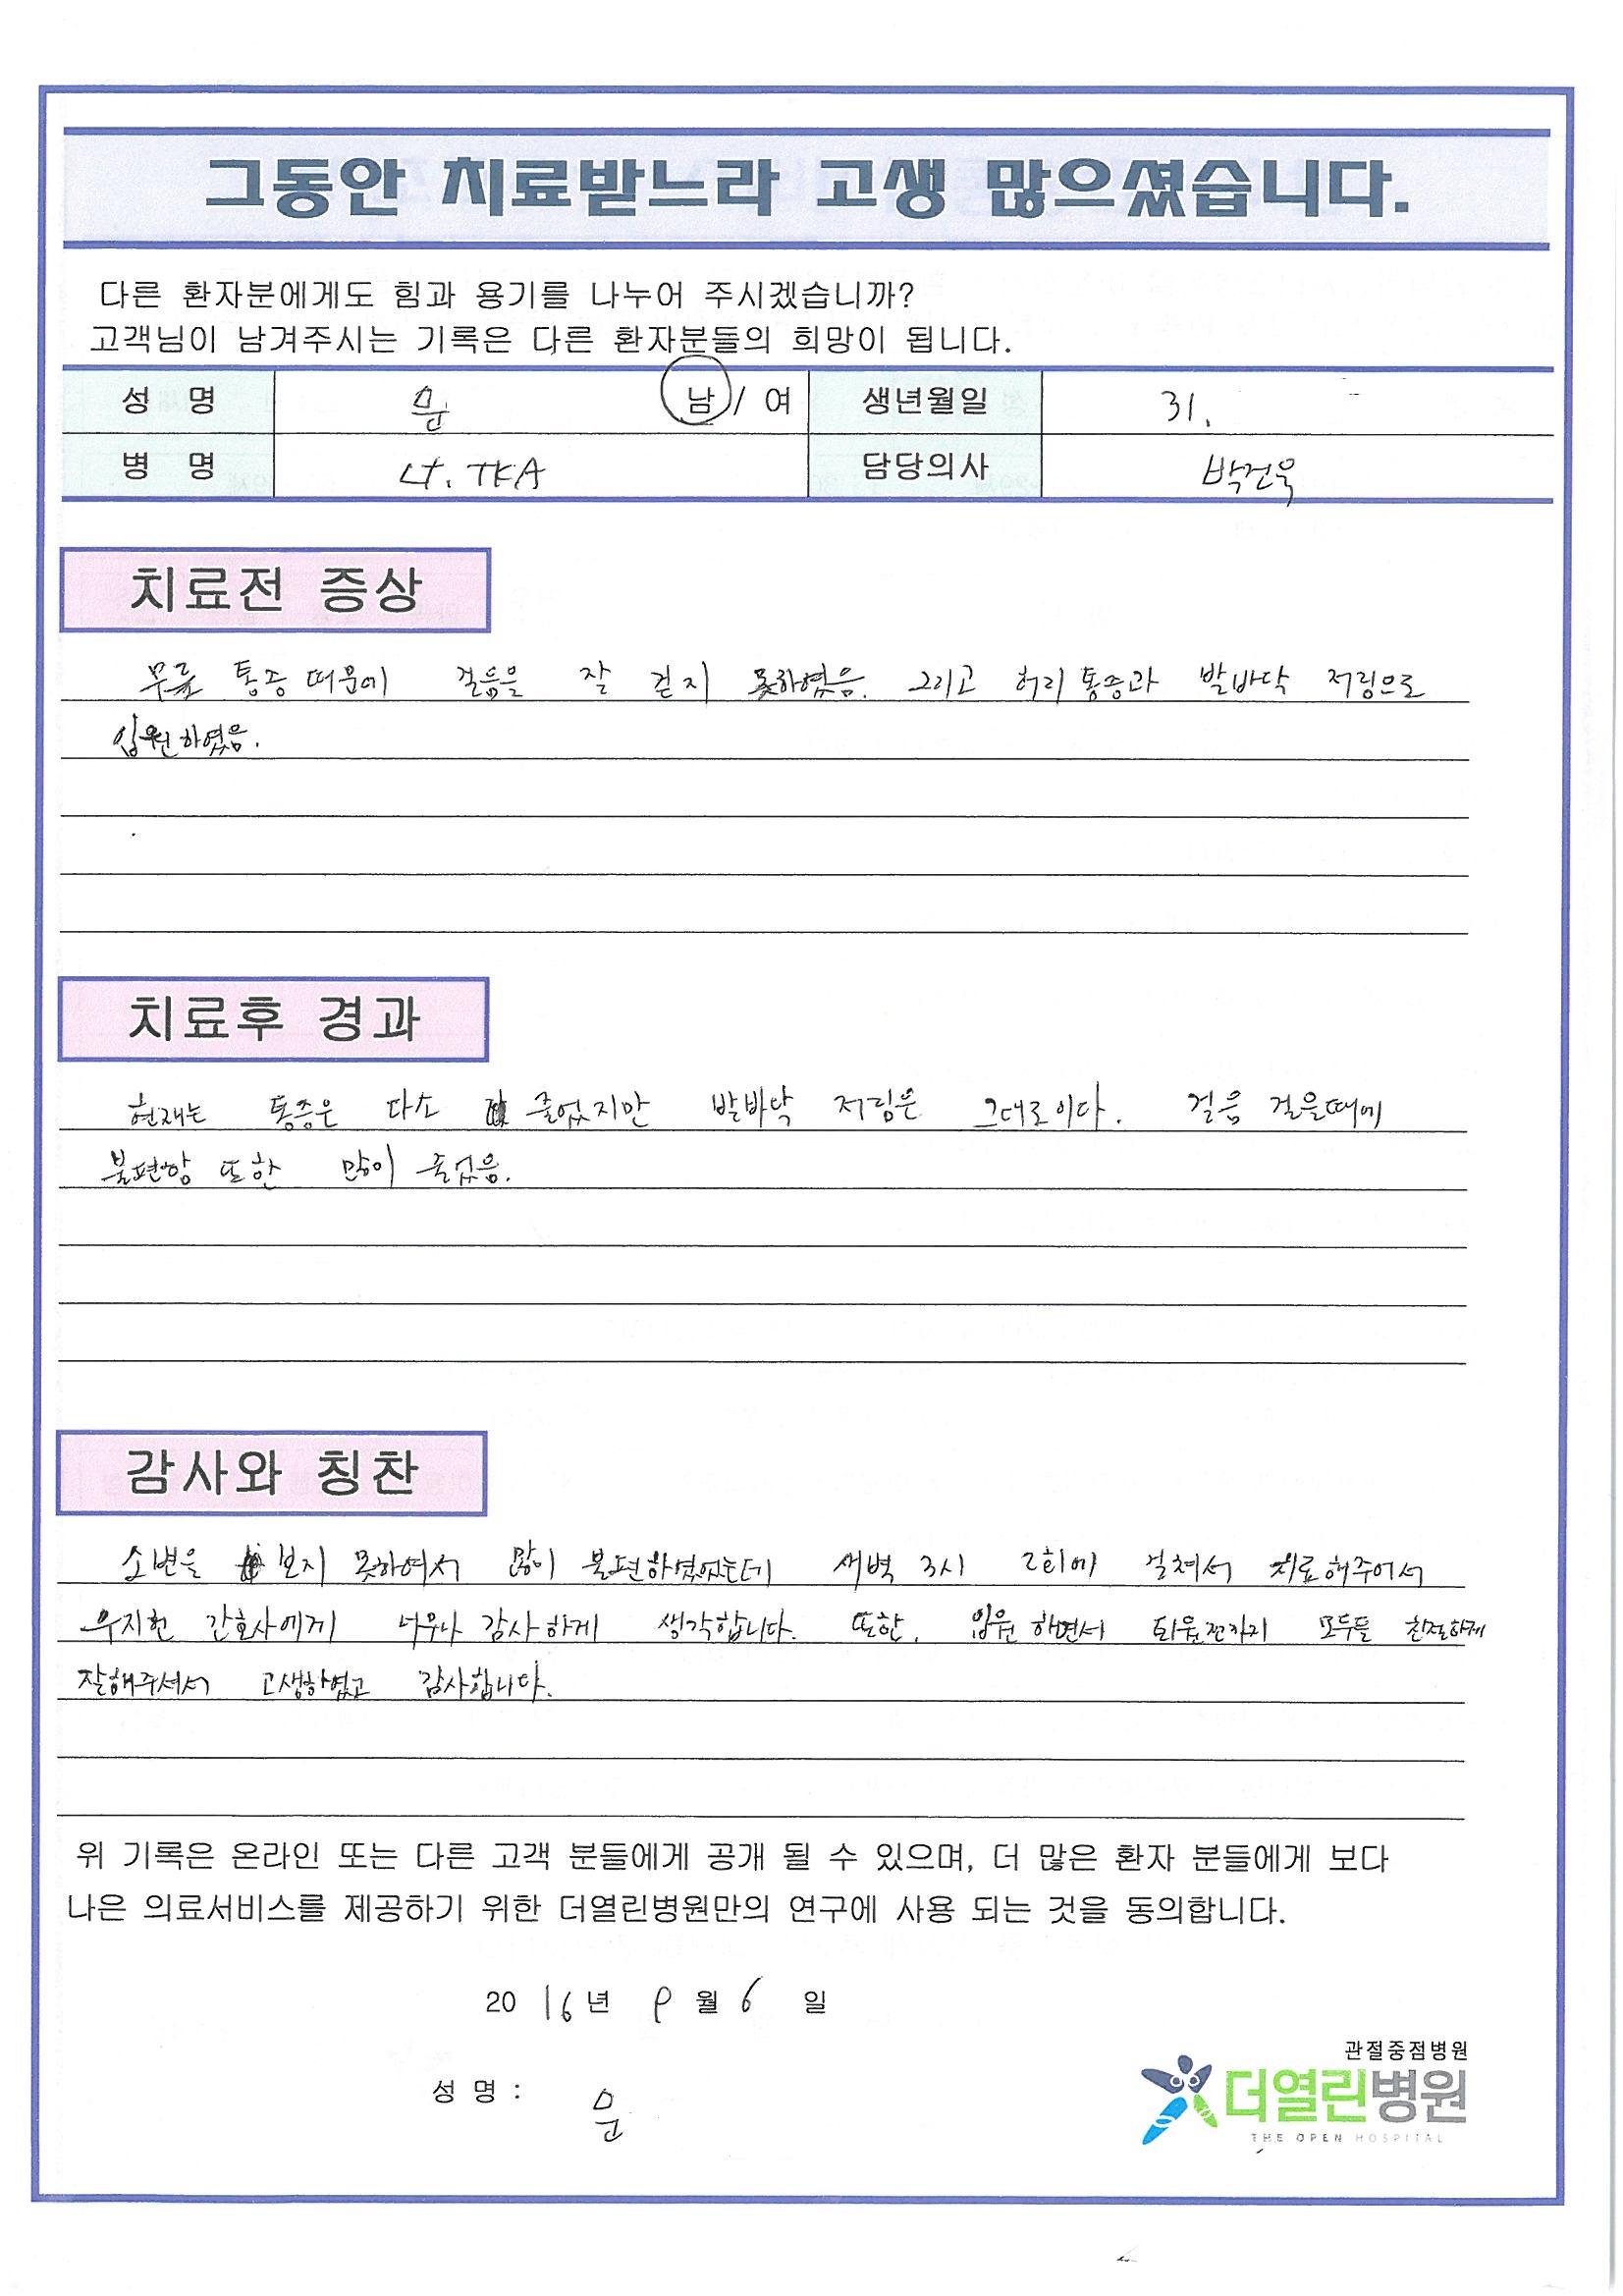 그동안 치료받느라 고생 많으셨습니다.
다른 환자분에게도 힘과 용기를 나누어 주시겠습니까?
고객님이 남겨주시는 기록은 다른 환자분들의 희망이 됩니다.
성 명 문 남 / 여 생년월일 31.
병 명 Lt. TKA 담당의사 박건욱
치료전 증상
무릎 통증 때문에 걸음을 잘 걷지 못하였음. 그리고 허리 통증과 발바닥 저림으로
입원하였음.
치료후 경과
현재는 통증은 다소 줄었지만 발바닥 저림은 그대로이다. 걸음 걸을때에
불편함 또한 많이 줄었음.
감사와 칭찬
소변을 보지 못하여서 많이 불편하였었는데 새벽 3시 2회에 걸쳐서 치료해주어서
우지헌 간호사에게 너무나 감사하게 생각합니다. 또한, 입원하면서 퇴원전까지 모두들 친절하게
잘해주셔서 고생하였고 감사합니다.
위 기록은 온라인 또는 다른 고객 분들에게 공개 될 수 있으며, 더 많은 환자 분들에게 보다
나은 의료서비스를 제공하기 위한 더열린병원만의 연구에 사용 되는 것을 동의합니다.
2016년 9월 6일
성 명 : 문
관절중점병원
더열린병원
THE OPEN HOSPITAL